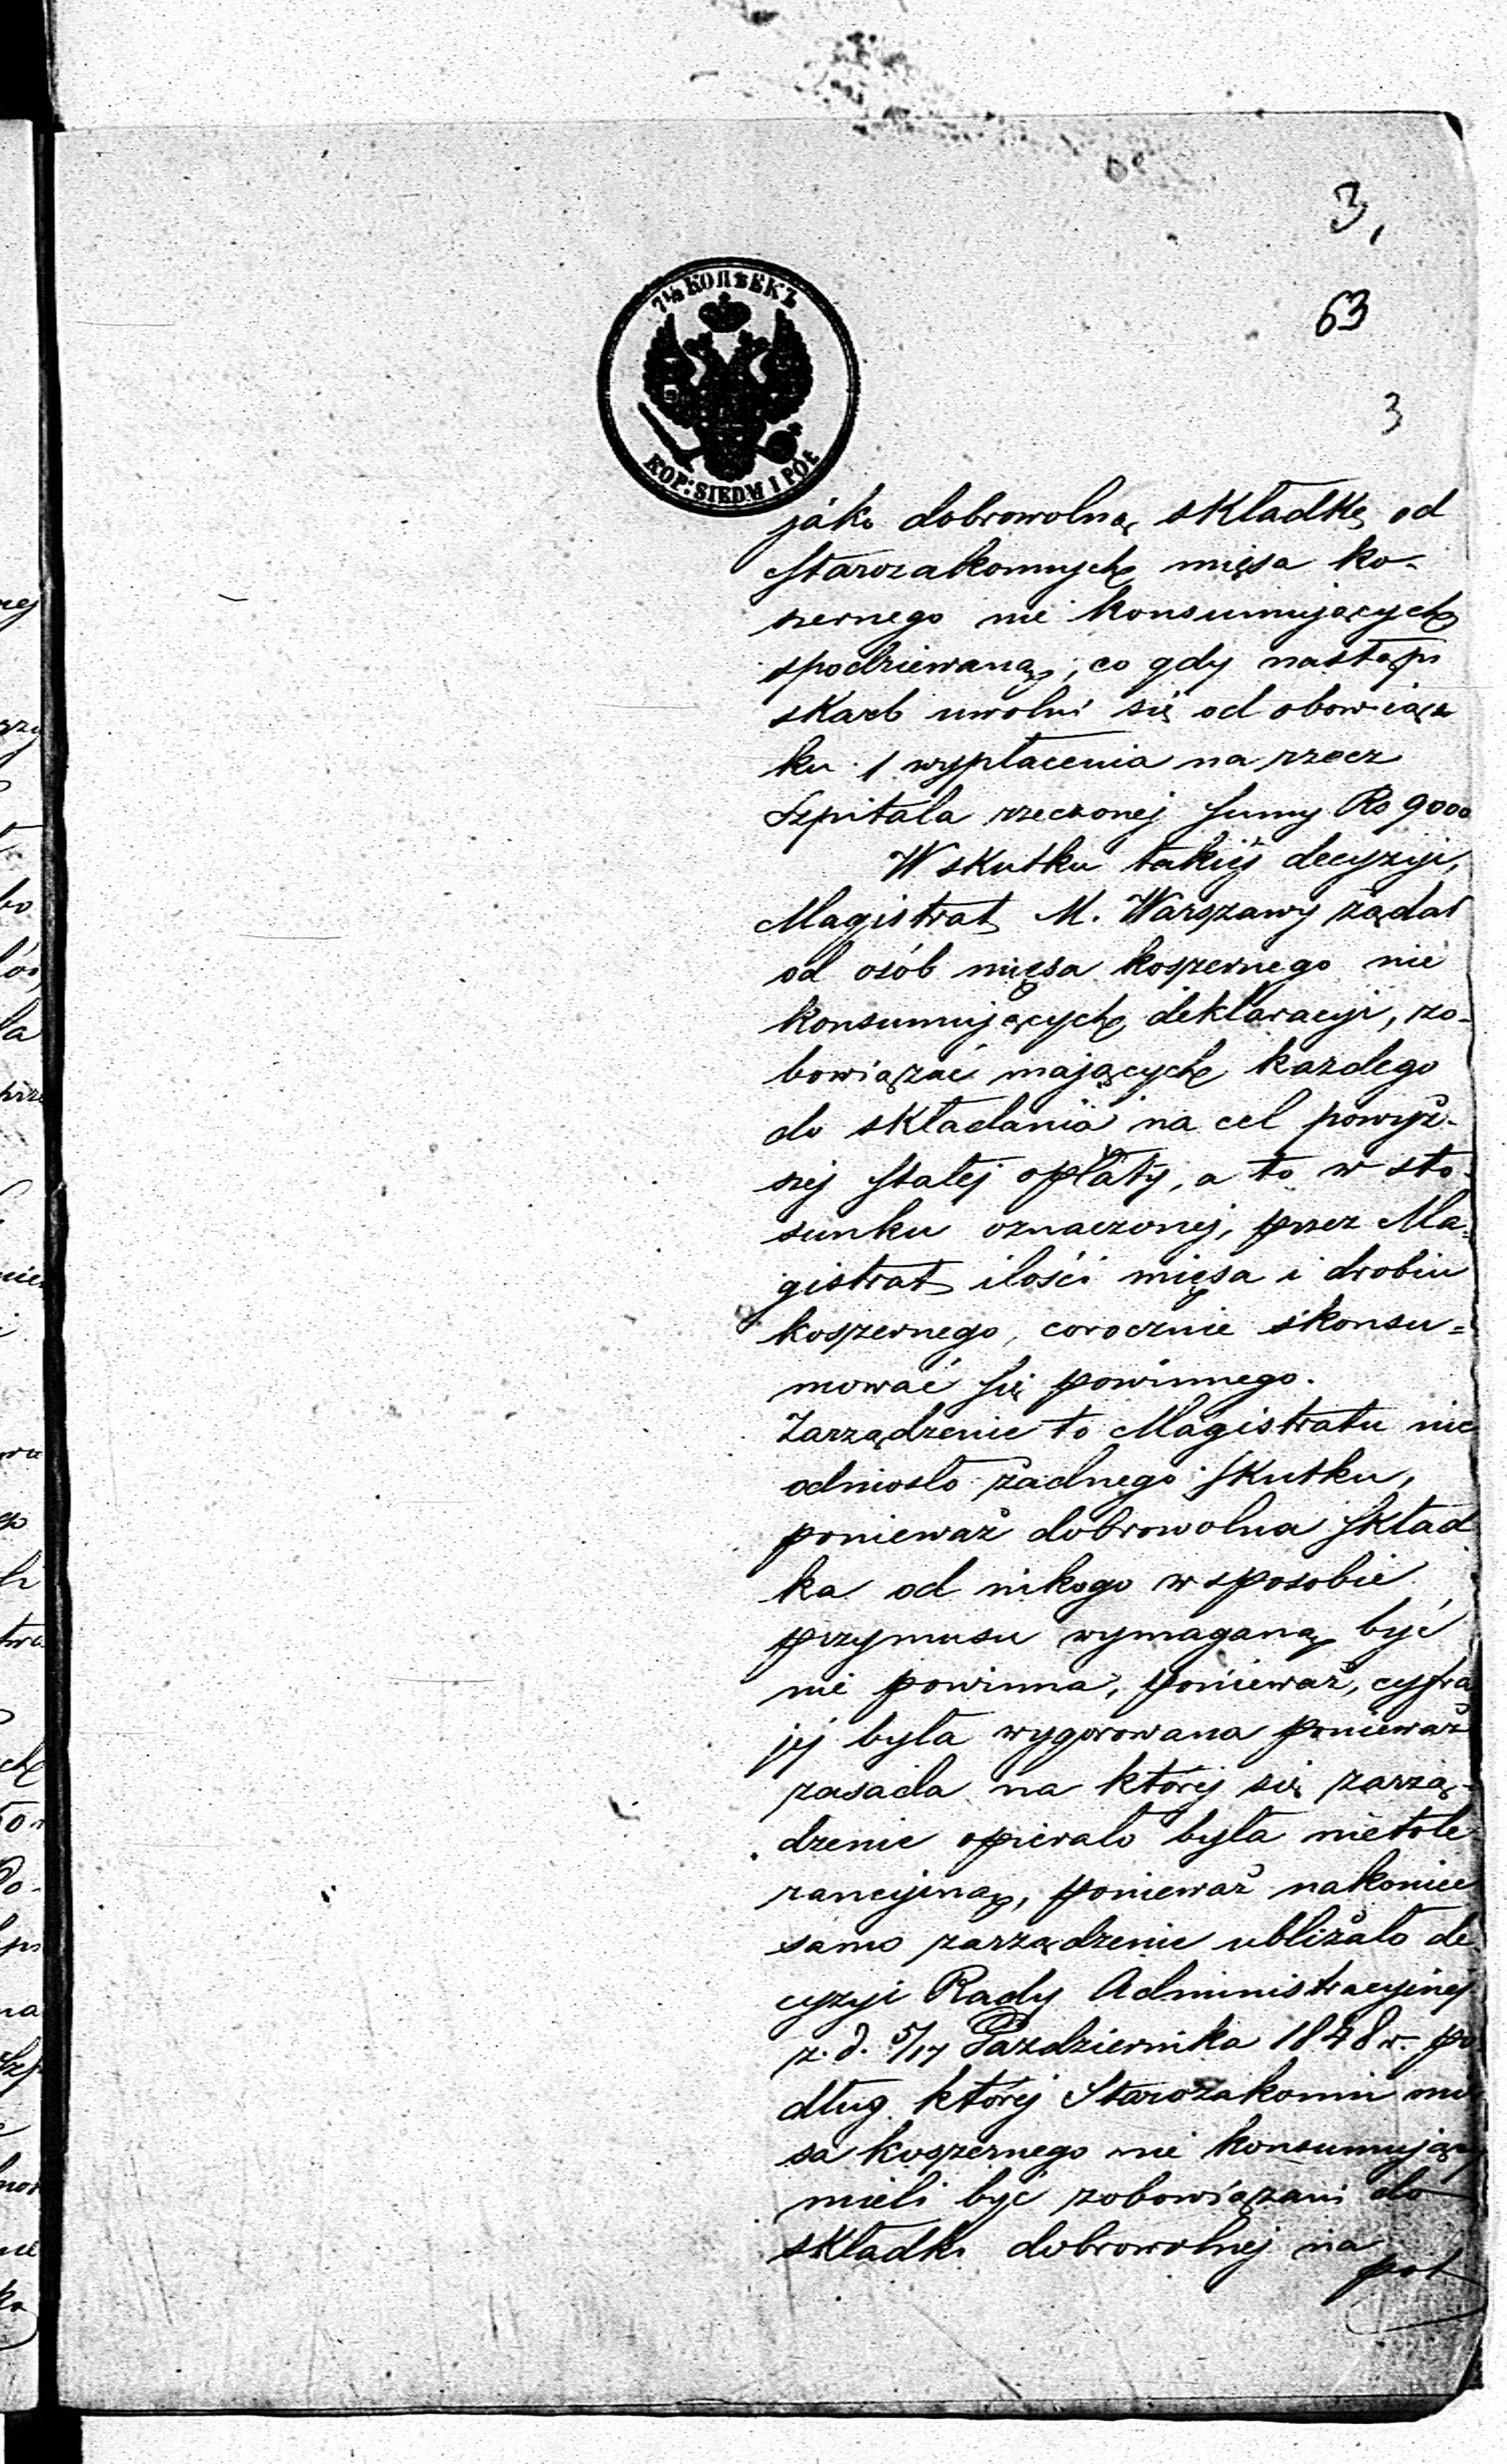 3,
63
3
7½ КОПѢЕКЪ
KOP: SIEDM I PÓŁ
jako dobrowolną składkę od
Starozakonnych mięsa ko-
szernego nie konsumujących
spodziewaną; co gdy nastąpi
skarb uwolni się od obowiąz
ku wypłacenia na rzecz
Szpitala rzeczonej Sumy Rs 9000
W skutku takiéj decyzyi,
Magistrat M. Warszawy żądał
od osób mięsa koszernego nie
konsumujących deklaracyi, zo-
bowiązać mających każdego
do składania na cel powyż-
szej stałej opłaty, a to w sto-
sunku oznaczonej, przez Ma-
gistrat ilości mięsa i drobiu
koszernego, corocznie skonsu=
mować się powinnego.
Zarządzenie to Magistratu nie
odniosło żadnego skutku,
ponieważ dobrowolna skład
ka od nikogo w sposobie
przymusu wymaganą być
nie powinna, ponieważ, cyfra
jej była wygorowana ponieważ
zasada na której się zarzą-
dzenie opierało była nietole-
rancyjną, ponieważ nakoniec
samo zarządzenie ubliżało de
cyzyi Rady Administracyjnej
z. d. 5/17 Pazdziernika 1848 r. po
dług której Starozakonni mię
sa koszernego nie konsumujący
mieli być zobowiązani do
składki dobrowolnej na